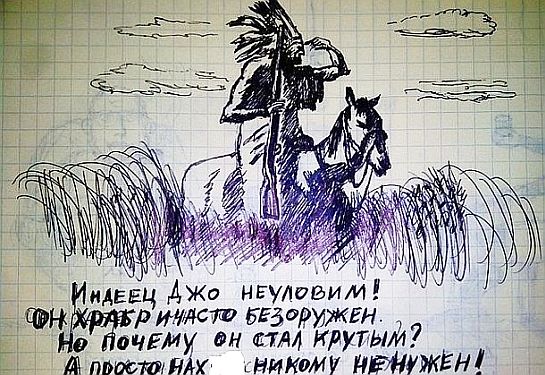 ИНДЕЕЦ ДЖО НЕУЛОВИМ!
ОН ХРАБР И ЧАСТО БЕЗОРУЖЕН.
НО ПОЧЕМУ ОН СТАЛ КРУТЫМ?
А ПРОСТО НАХ НИКОМУ НЕ НУЖЕН!